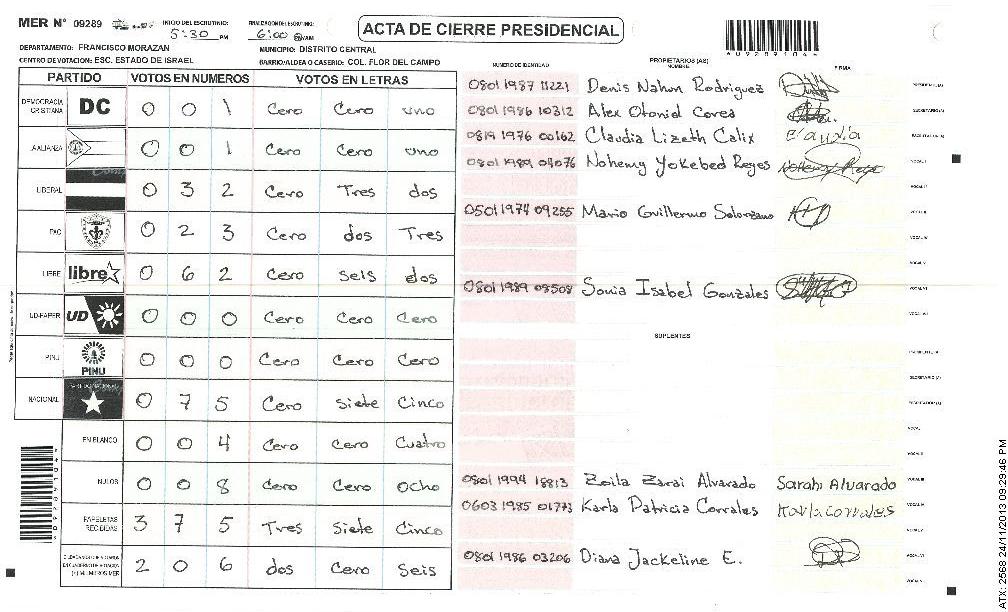 MER N° 09289 INICIO DEL ESCRUTINIO: 5:30 PM FINALIZACION DEL ESCRUTINIO: 6:00 AM
ACTA DE CIERRE PRESIDENCIAL
DEPARTAMENTO: FRANCISCO MORAZAN MUNICIPIO: DISTRITO CENTRAL
CENTRO DE VOTACION: ESC. ESTADO DE ISRAEL BARRIO/ALDEA O CASERIO: COL. FLOR DEL CAMPO
PARTIDO VOTOS EN NUMEROS VOTOS EN LETRAS
DEMOCRACIA CRISTIANA DC 0 0 1 Cero Cero uno
ALIANZA 0 0 1 Cero Cero uno
LIBERAL 0 3 2 Cero Tres dos
PAC 0 2 3 Cero dos Tres
LIBRE libre 0 6 2 Cero seis dos
UD-FAPER UD 0 0 0 Cero Cero Cero
PINU PINU 0 0 0 Cero Cero Cero
NACIONAL 0 7 5 Cero siete Cinco
EN BLANCO 0 0 4 Cero Cero Cuatro
NULOS 0 0 8 Cero Cero Ocho
PAPELETAS RECIBIDAS 3 7 5 Tres siete Cinco
2 0 6 dos Cero seis
NUMERO DE IDENTIDAD PROPIETARIOS (AS) NOMBRE FIRMA
0801 1987 11221 Denis Nahun Rodriguez PRESIDENTE (A)
0801 1986 10312 Alex Otonid Corea SECRETARIO (A)
0819 1976 00162 Claudia Lizeth Calix Claudia ESCRUTADOR (A)
0801 1989 04076 Nohemy Yokebed Reyes Nohemy Reyes VOCAL I
VOCAL II
0501 1974 09255 Mario Guillermo Solorzano VOCAL III
VOCAL IV
VOCAL V
0801 1989 08508 Sonia Isabel Gonzales VOCAL VI
VOCAL VII
SUPLENTES
PRESIDENTE (A)
SECRETARIO (A)
ESCRUTADOR (A)
VOCAL I
VOCAL II
0801 1994 18813 Zoila Zarai Alvarado Sarahi Alvarado VOCAL III
0603 1985 01773 Karla Patricia Corrales Karla corrales VOCAL IV
VOCAL V
0801 1986 03206 Diana Jackeline E. VOCAL VI
VOCAL VII
ATX: 2568 24/11/2013 09:29:46 PM